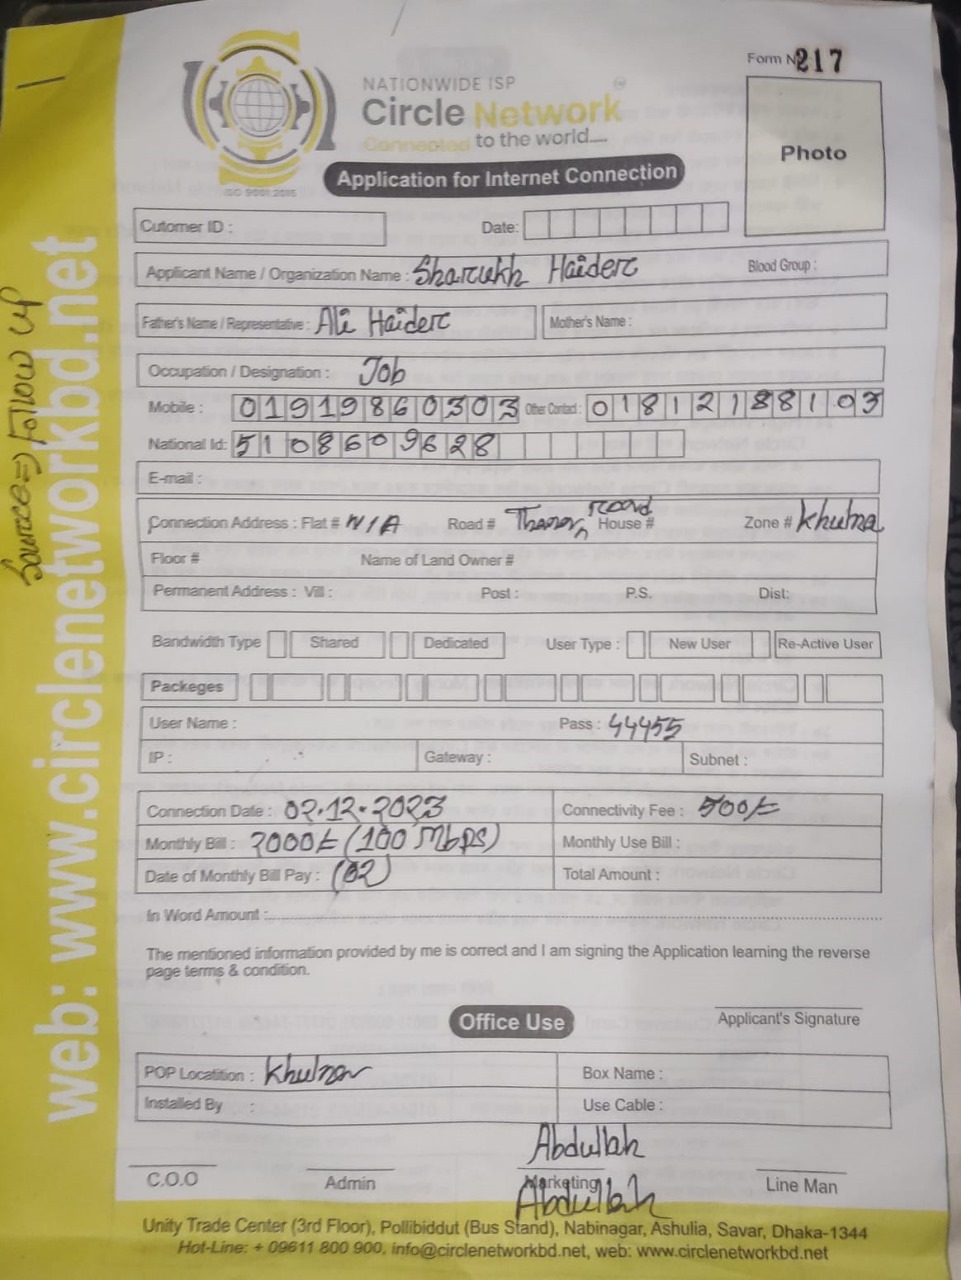 Form No 217
NATIONWIDE ISP
Circle Network
Connected to the world....
ISO 9001:2015
Photo
Application for Internet Connection
Cutomer ID :
Date:
Applicant Name / Organization Name : Sharukh Haider
Blood Group :
Father's Name / Representative : Ali Haider
Mother's Name :
Occupation / Designation : Job
Mobile : 01919860303 Other Contact : 01812188103
National Id: 5108609628
E-mail :
Connection Address : Flat # N/A Road # Thana Road House # Zone # Khulna
Floor # Name of Land Owner #
Permanent Address : Vill : Post : P.S. Dist:
Bandwidth Type Shared Dedicated User Type : New User Re-Active User
Packeges
User Name : Pass : 44455
IP : Gateway : Subnet :
Connection Date : 02.12.2023 Connectivity Fee : 500/=
Monthly Bill : 2000/= (100 Mbps) Monthly Use Bill :
Date of Monthly Bill Pay : (02) Total Amount :
In Word Amount :
The mentioned information provided by me is correct and I am signing the Application learning the reverse
page terms & condition.
Applicant's Signature
Office Use
POP Locatition : Khulna Box Name :
Installed By : Use Cable :
Abdullah
C.O.O Admin Marketing Line Man
Abdullah
Unity Trade Center (3rd Floor), Pollibiddut (Bus Stand), Nabinagar, Ashulia, Savar, Dhaka-1344
Hot-Line: + 09611 800 900, info@circlenetworkbd.net, web: www.circlenetworkbd.net
web: www.circlenetworkbd.net
Source => Follow up